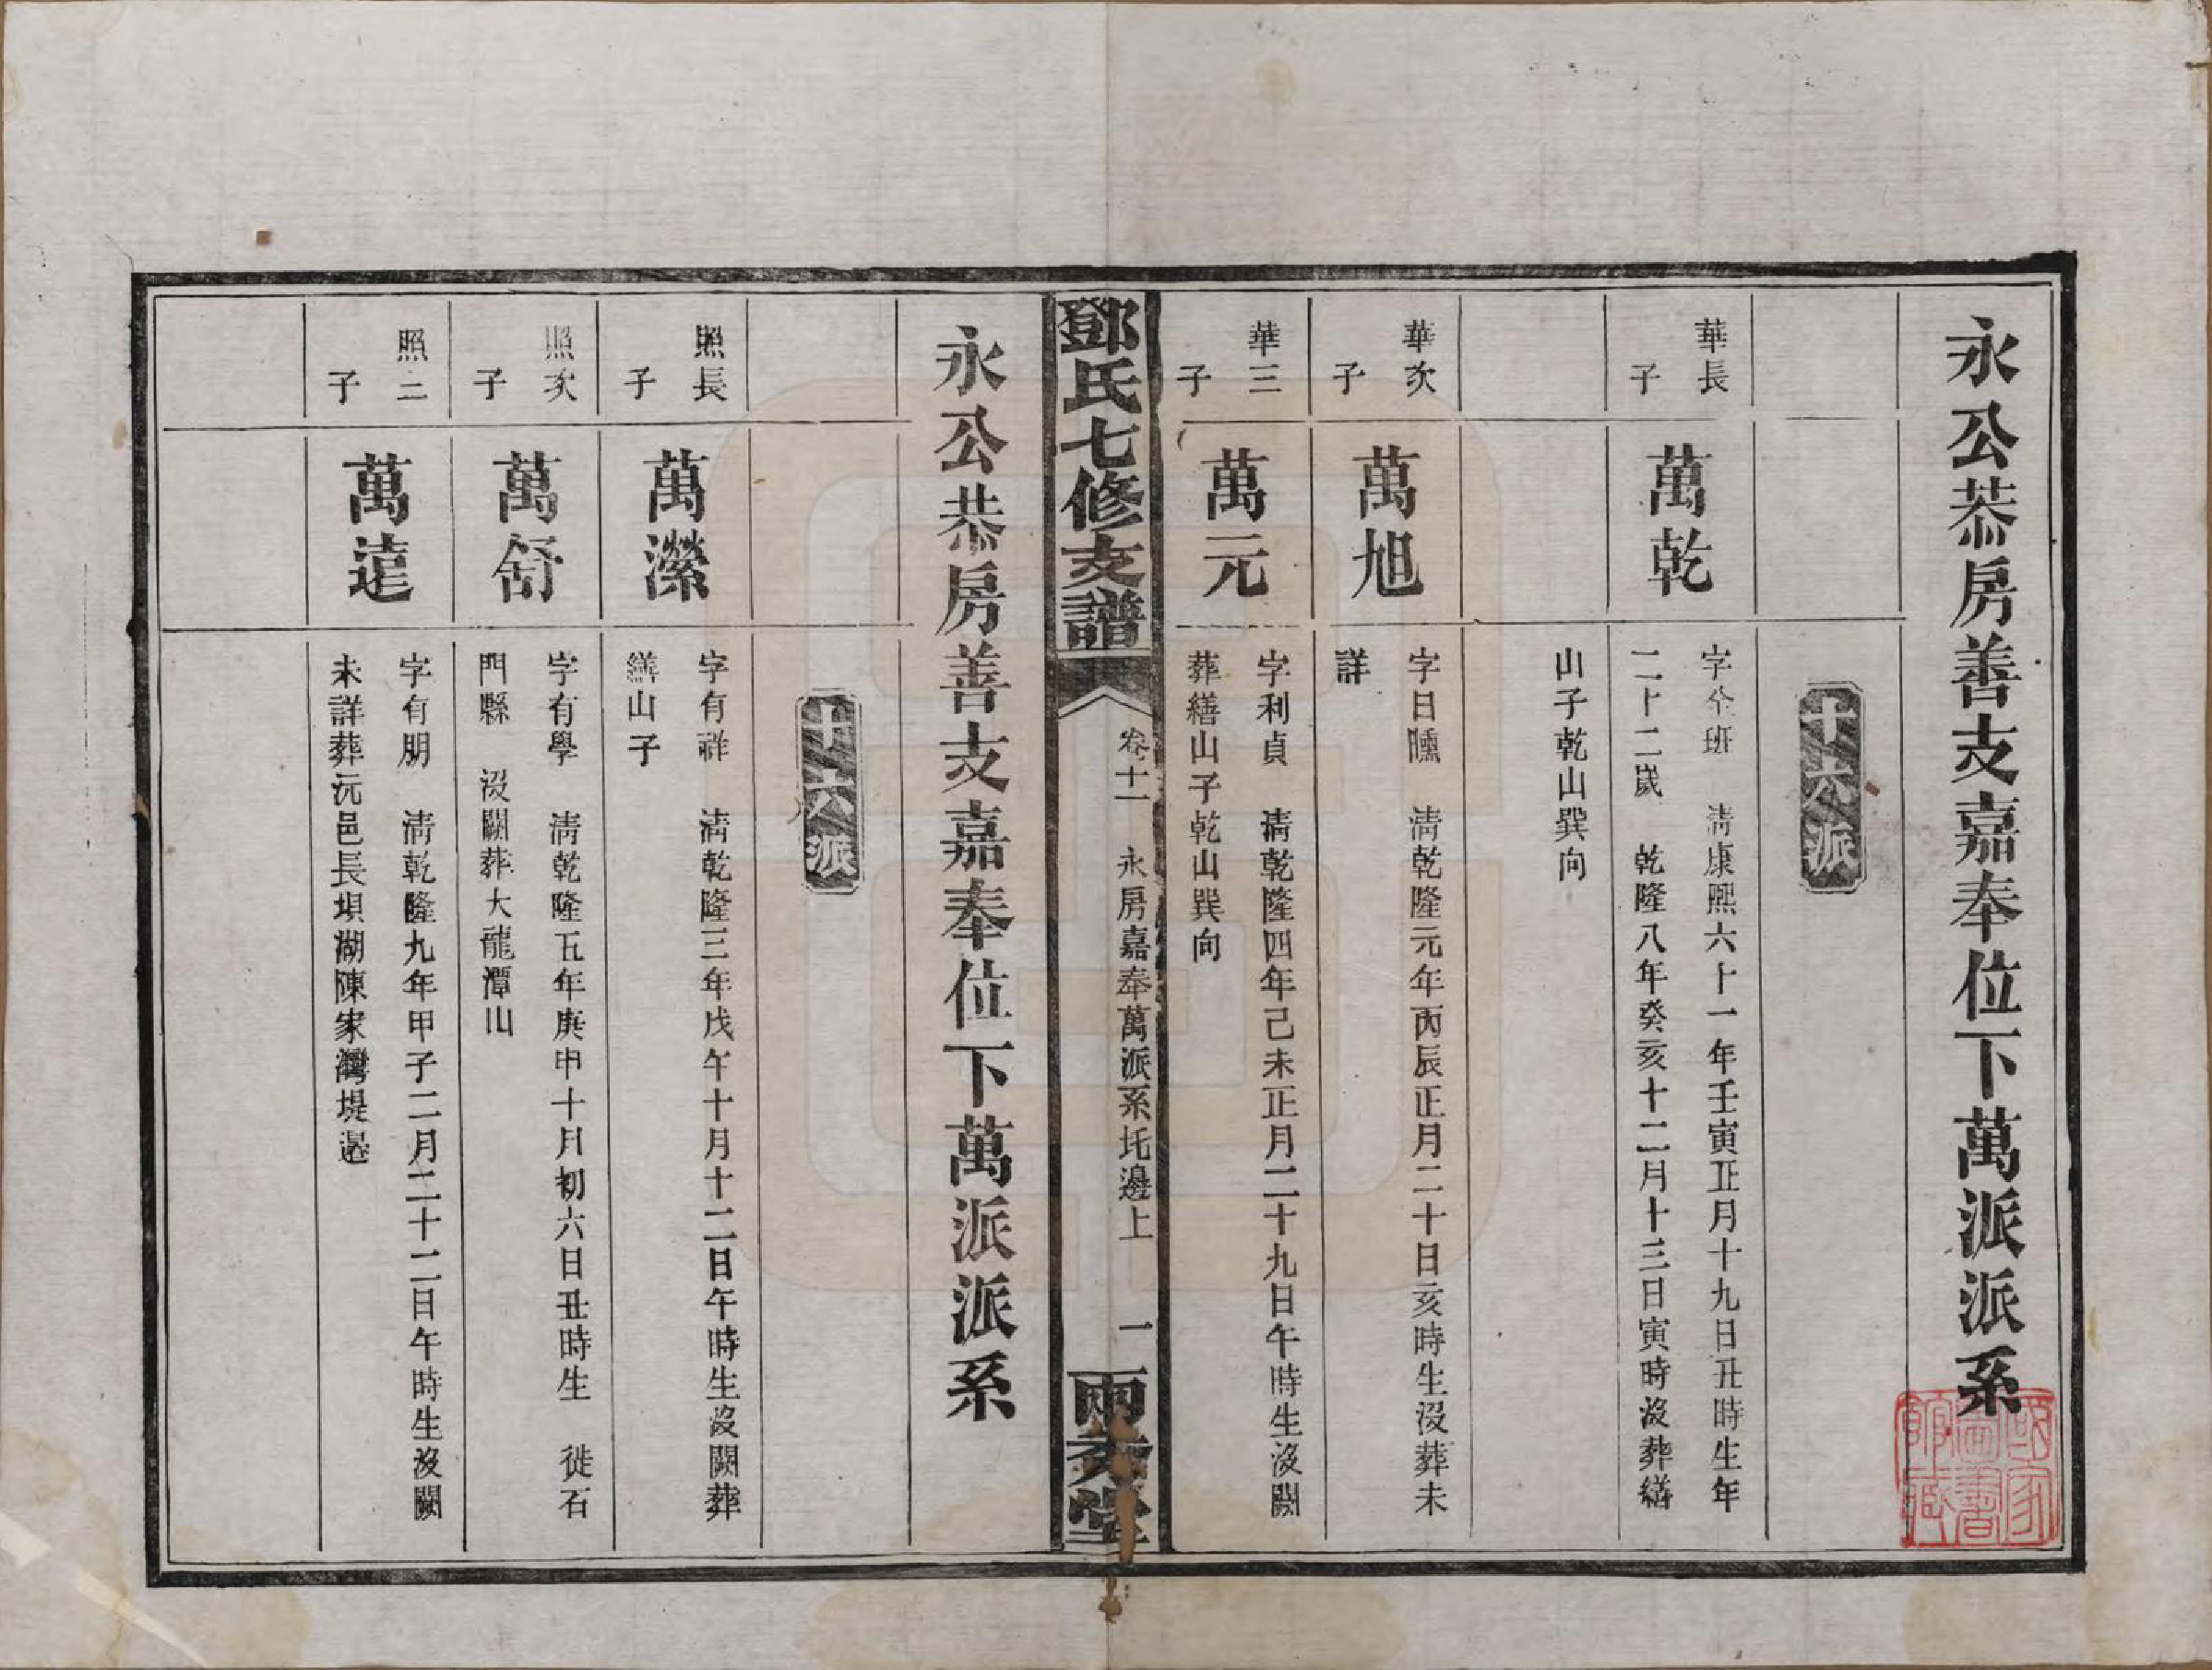 永公恭房善支嘉奉位下萬派派系
十六派
華長
子
萬乾
字全班　清康熙六十一年壬寅正月十九日丑時生年
二十二歲　乾隆八年癸亥十二月十三日寅時沒葬繕
山子乾山巽向
華次
子
萬旭
字日曛　清乾隆元年丙辰正月二十日亥時生沒葬未
詳
華三
子
萬元
字利貞　清乾隆四年己未正月二十九日午時生沒闕
葬繕山子乾山巽向
鄧氏七修支譜
卷十一　永房嘉奉萬派系圫邊上　一
兩秀堂
永公恭房善支嘉奉位下萬派派系
十六派
照長
子
萬瀠
字有祥　清乾隆三年戊午十月十二日午時生沒闕葬
繕山子
照次
子
萬舒
字有學　清乾隆五年庚申十月初六日丑時生　徙石
門縣　沒闕葬大龍潭山
照三
子
萬遠
字有朋　清乾隆九年甲子二月二十二日午時生沒闕
未詳葬沅邑長垻湖陳家灣堤邊
國家圖書館藏